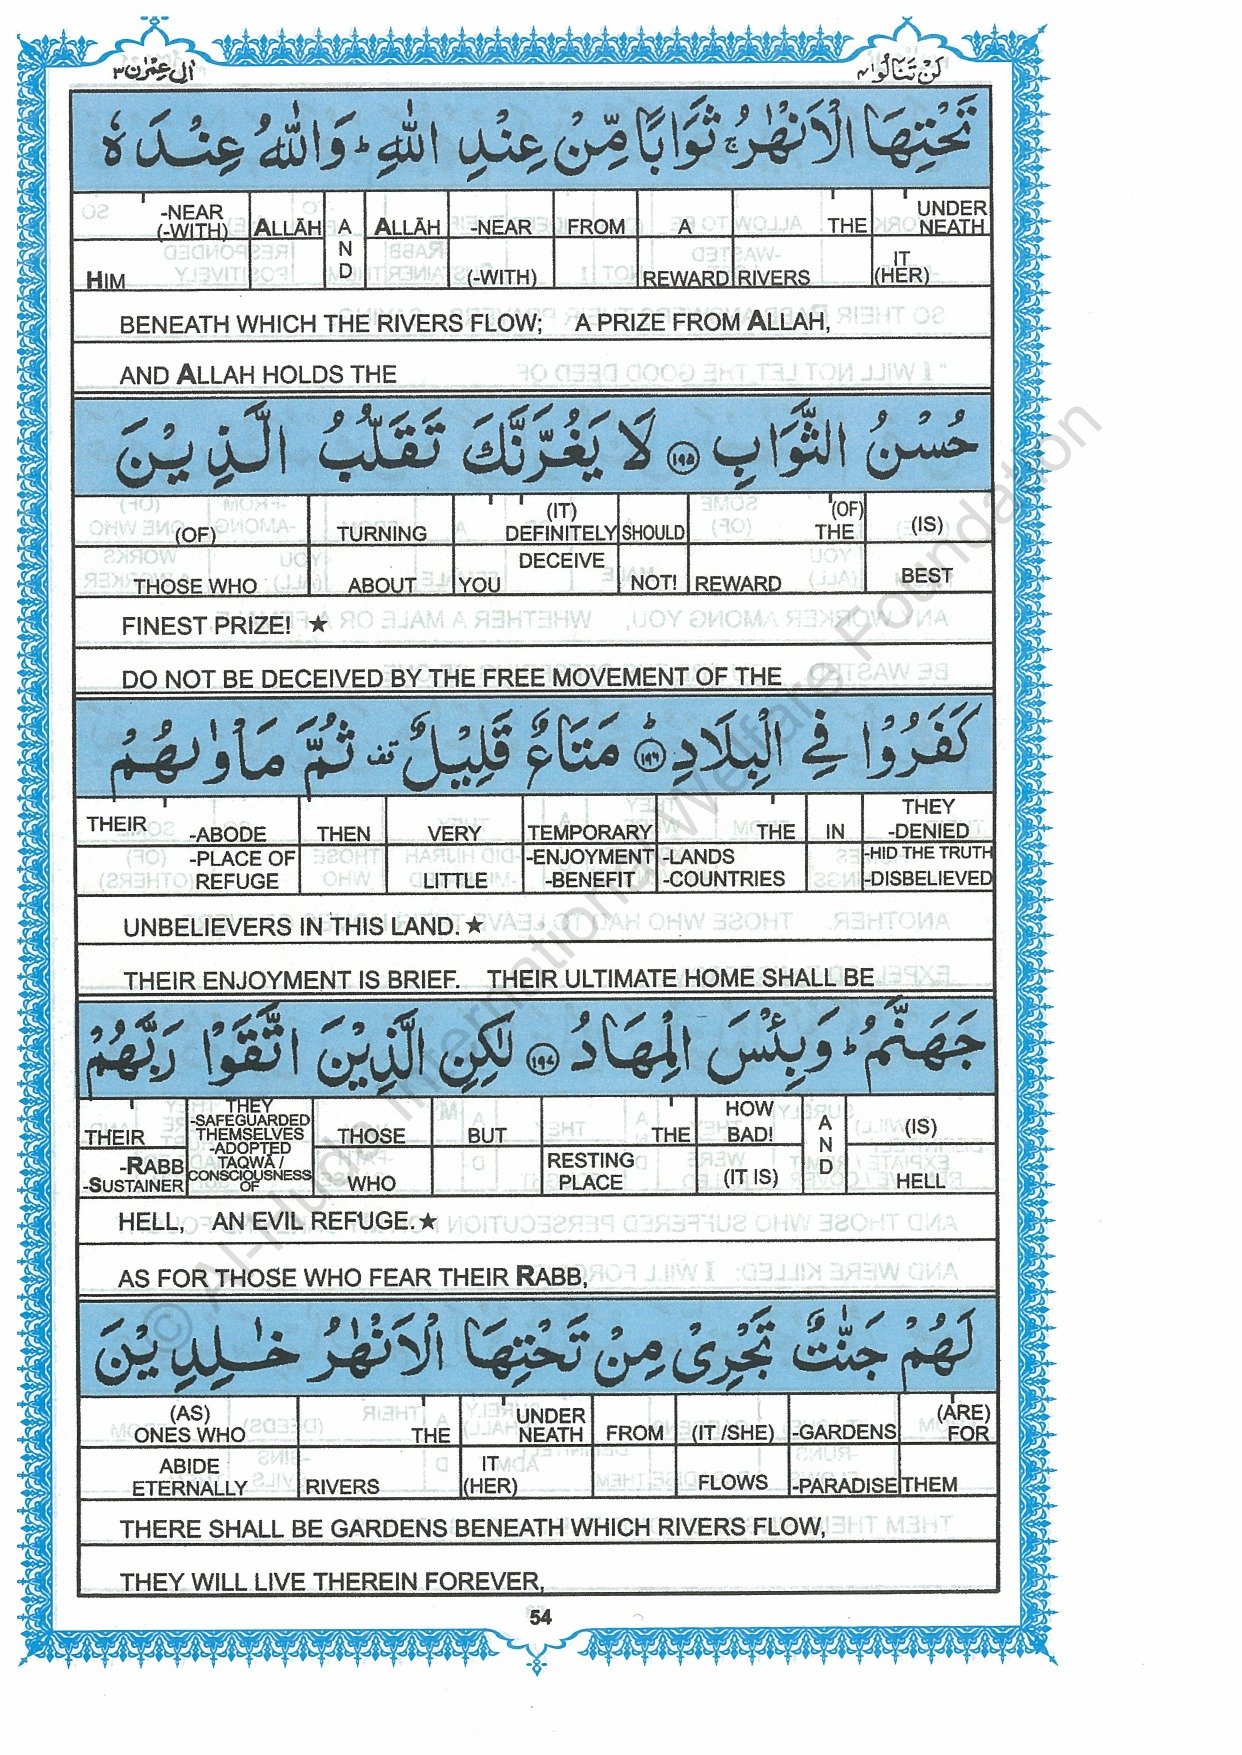 اٰلِ عِمْرٰن ٣ لَنْ تَنَالُوا ٤
تَحْتِهَا الْاَنْهٰرُ ۚ ثَوَابًا مِّنْ عِنْدِ اللّٰهِ ؕ وَاللّٰهُ عِنْدَهٗ
-NEAR (-WITH) HIM | ALLĀH | AND | ALLĀH | -NEAR (-WITH) | FROM | A REWARD | RIVERS | THE | UNDER NEATH IT (HER)
BENEATH WHICH THE RIVERS FLOW; A PRIZE FROM ALLAH,
AND ALLAH HOLDS THE
حُسْنُ الثَّوَابِ ١٩٥ لَا يَغُرَّنَّكَ تَقَلُّبُ الَّذِيْنَ
(OF) THOSE WHO | TURNING ABOUT | (IT) DEFINITELY DECEIVE YOU | SHOULD NOT! | (OF) THE REWARD | (IS) BEST
FINEST PRIZE! ★
DO NOT BE DECEIVED BY THE FREE MOVEMENT OF THE
كَفَرُوْا فِي الْبِلَادِ ؕ ١٩٦ مَتَاعٌ قَلِيْلٌ قف ثُمَّ مَاْوٰىهُمْ
THEIR -ABODE -PLACE OF REFUGE | THEN | VERY LITTLE | TEMPORARY -ENJOYMENT -BENEFIT | THE -LANDS -COUNTRIES | IN | THEY -DENIED -HID THE TRUTH -DISBELIEVED
UNBELIEVERS IN THIS LAND. ★
THEIR ENJOYMENT IS BRIEF. THEIR ULTIMATE HOME SHALL BE
جَهَنَّمُ ؕ وَبِئْسَ الْمِهَادُ ١٩٧ لٰكِنِ الَّذِيْنَ اتَّقَوْا رَبَّهُمْ
THEIR -RABB -SUSTAINER | THEY -SAFEGUARDED THEMSELVES -ADOPTED TAQWĀ / CONSCIOUSNESS OF | THOSE WHO | BUT | THE RESTING PLACE | HOW BAD! (IT IS) | AND | (IS) HELL
HELL, AN EVIL REFUGE. ★
AS FOR THOSE WHO FEAR THEIR RABB,
لَهُمْ جَنّٰتٌ تَجْرِيْ مِنْ تَحْتِهَا الْاَنْهٰرُ خٰلِدِيْنَ
(AS) ONES WHO ABIDE ETERNALLY | THE RIVERS | UNDER NEATH IT (HER) | FROM | (IT /SHE) FLOWS | -GARDENS -PARADISE | (ARE) FOR THEM
THERE SHALL BE GARDENS BENEATH WHICH RIVERS FLOW,
THEY WILL LIVE THEREIN FOREVER,
54
© Al-Huda International Welfare Foundation